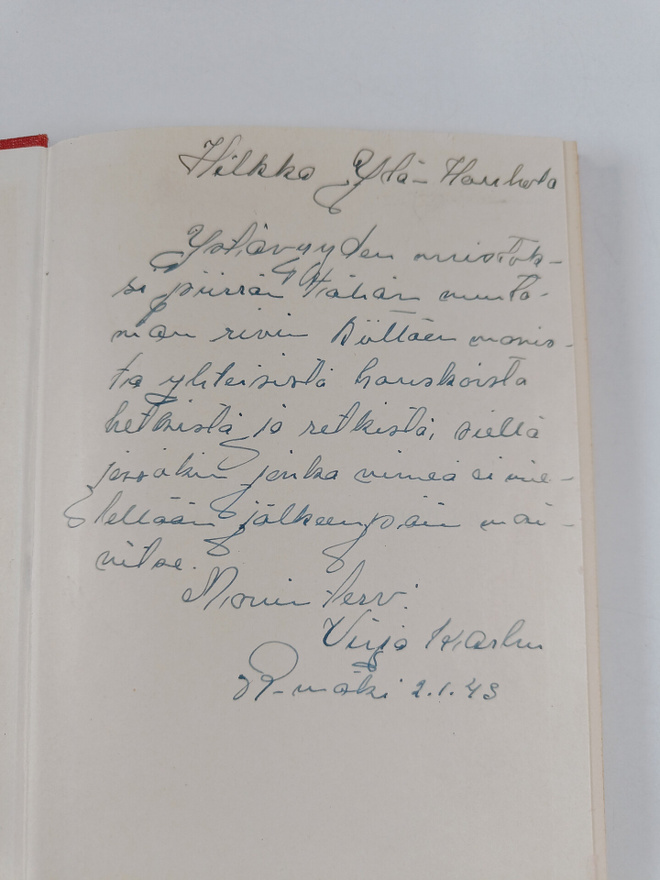 Hilkka Ylä-Hauhola
Ystävyyden muistok-
si piirrän tähän muuta-
man rivin kiittäen monis-
ta yhteisistä hauskoista
hetkistä ja retkistä, siellä
jossakin jonka nimeä ei mie-
lellään jälkeenpäin mai-
nitse.
Monin terv.
Virja Karhu
R-mäki 2.1.43